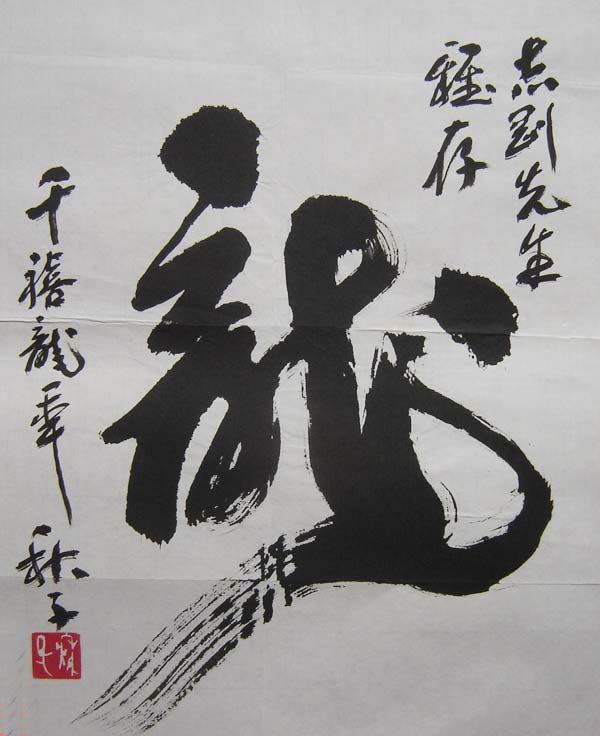 志剛先生
雅存
龍
千禧龍年 秋子